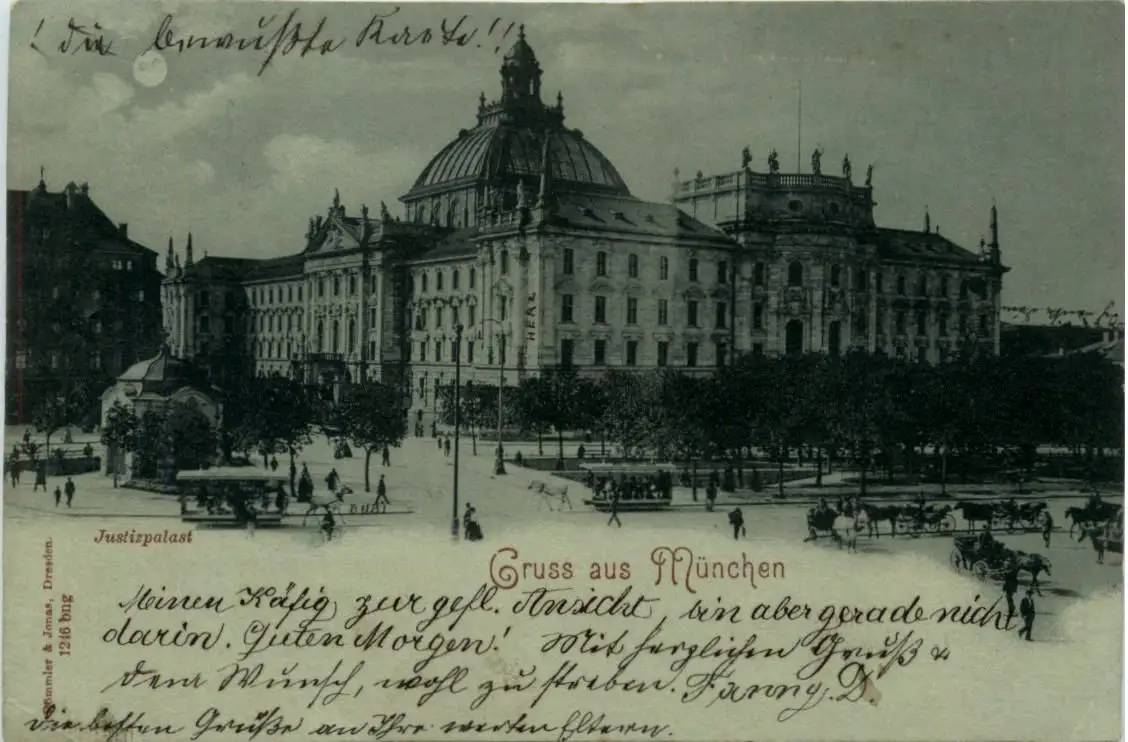 ! die bewußte Karte!!
HERR
Justizpalast
Gruss aus München
Sömmler & Jonas, Dresden.
1216 bng
Meinen Käfig zur gefl. Ansicht, bin aber gerade nicht
darin. Guten Morgen! Mit herzlichen Gruß &
dem Wunsch, wohl zu streben. Fanny. D.
die besten Grüße an Ihre werten Eltern.